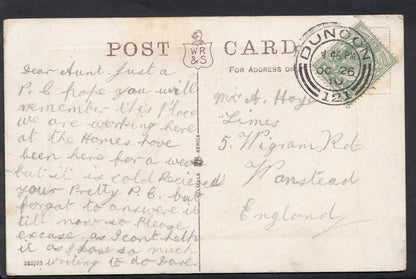 POST CARD
WR
& S
FOR ADDRESS O
DUNOON
OC 26
121
Dear Aunt. Just a
P.C hope you will
remember this Place
we are working here
at the Homes have
been here for a week
but it is cold Recieved
your Pretty P.C. but
forgot to answere it
till now so Please
excuse. as I cont help
it as I have so much
writing to do Dave.
Mrs A. Hoye
Limes
5. Wigram Rd
Wanstead
England
SERIES